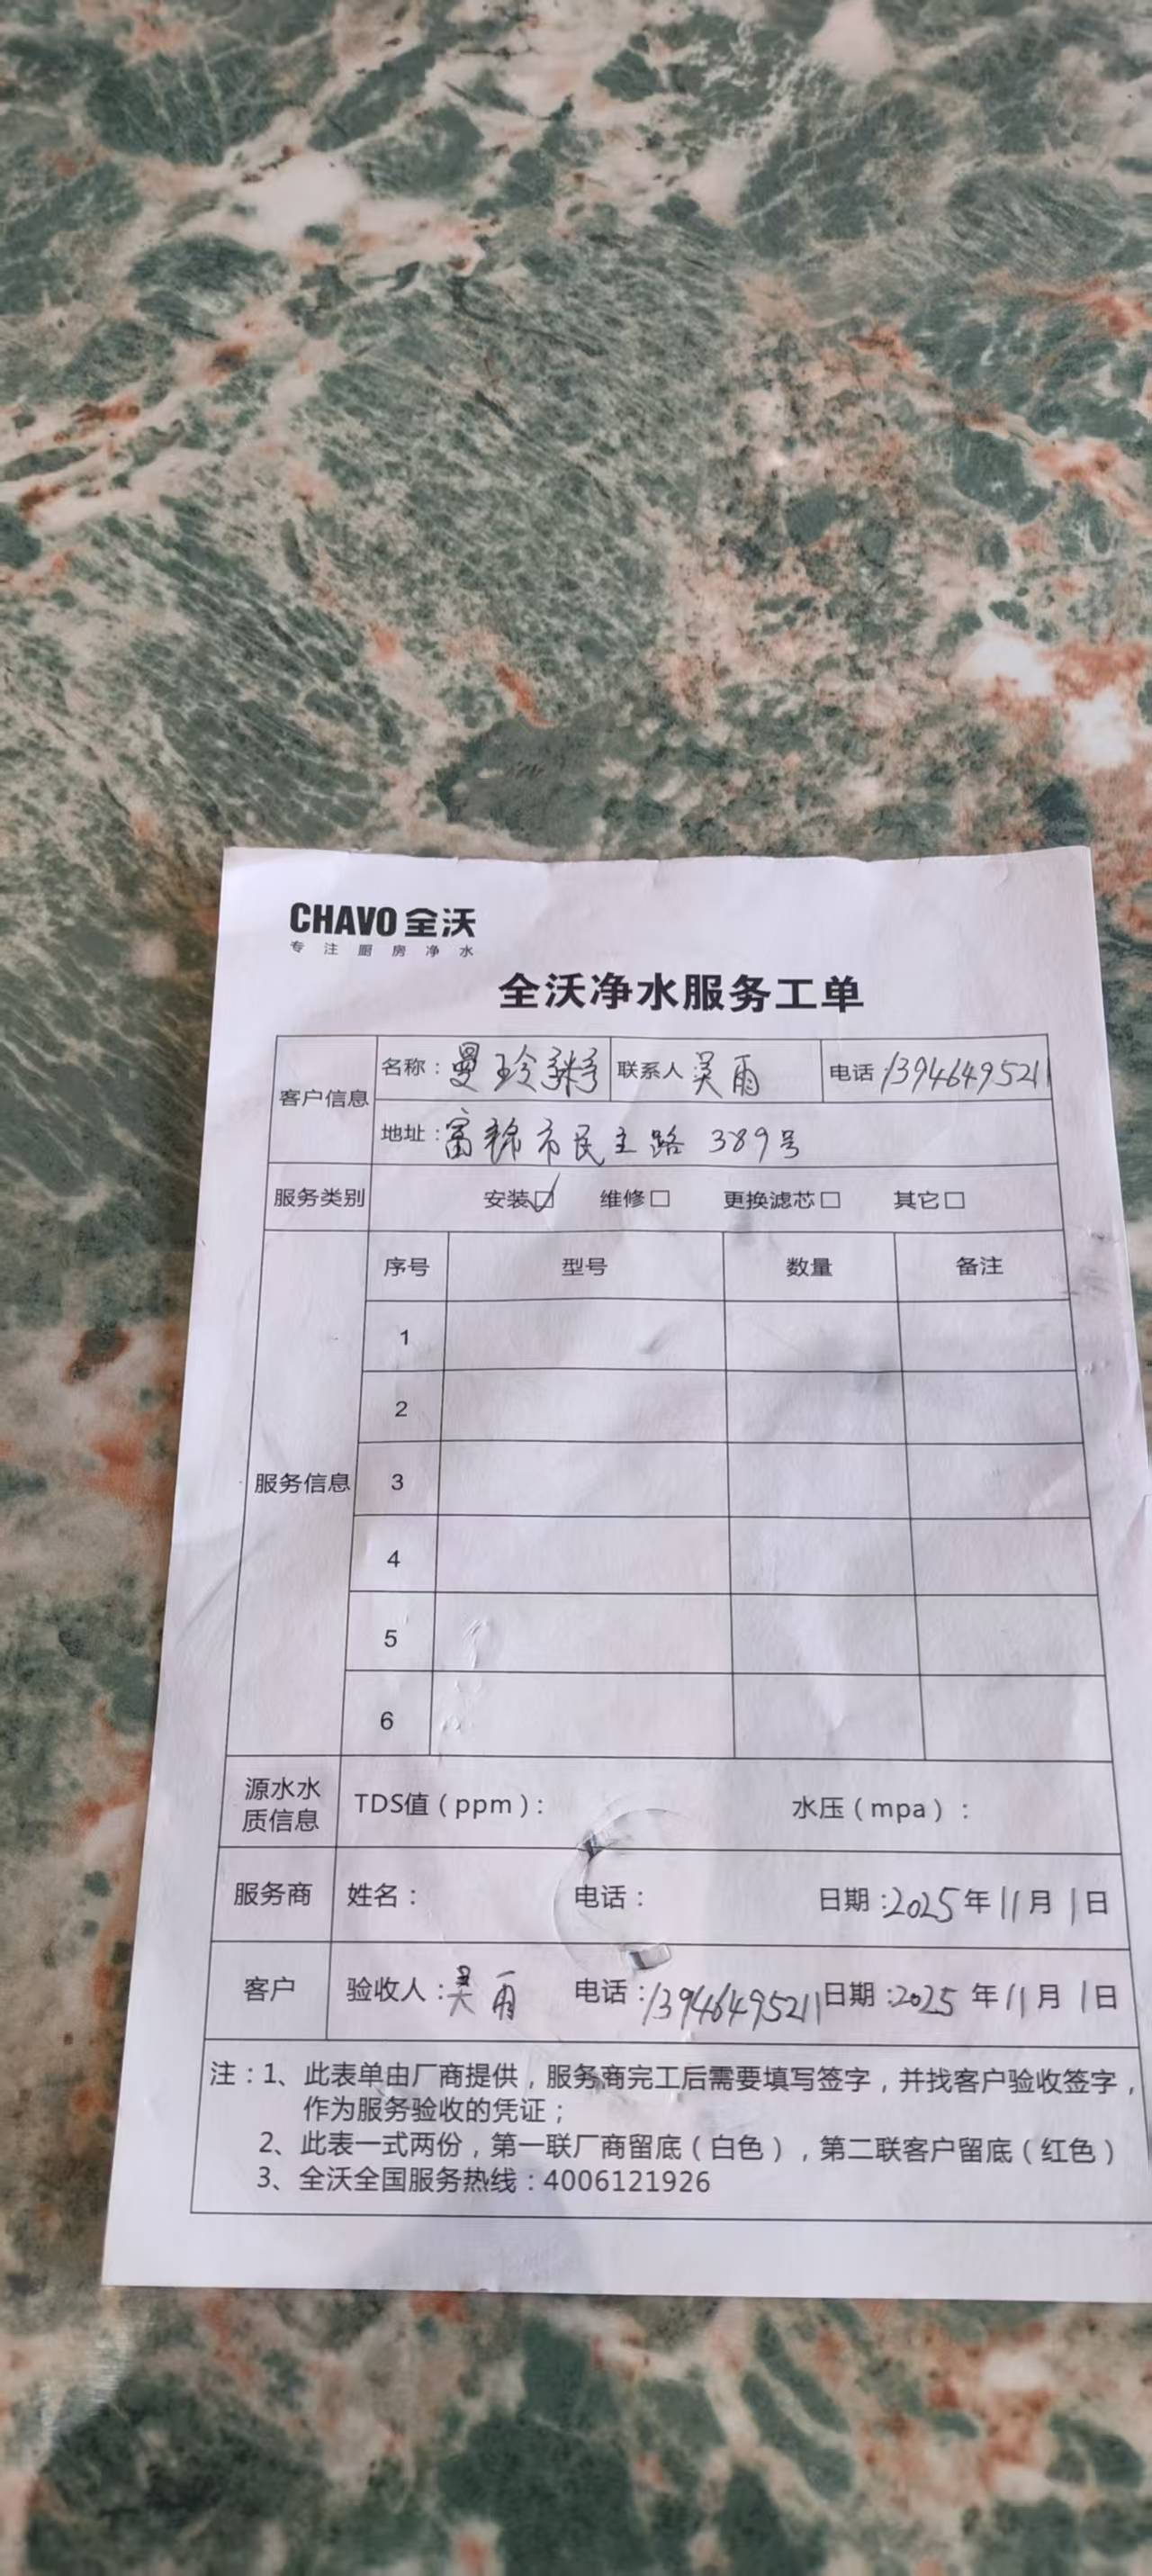 CHAVO 全沃
专注厨房净水
全沃净水服务工单
客户信息 名称：曼玲粥 联系人 吴雨 电话 13946495211
地址：富锦市民主路 389号
服务类别 安装☑ 维修□ 更换滤芯□ 其它□
服务信息 序号 型号 数量 备注
1
2
3
4
5
6
源水水质信息 TDS值（ppm）： 水压（mpa）：
服务商 姓名： 电话： 日期：2025年11月1日
客户 验收人：吴雨 电话：13946495211 日期：2025年11月1日
注：1、此表单由厂商提供，服务商完工后需要填写签字，并找客户验收签字，
作为服务验收的凭证；
2、此表一式两份，第一联厂商留底（白色），第二联客户留底（红色）
3、全沃全国服务热线：4006121926